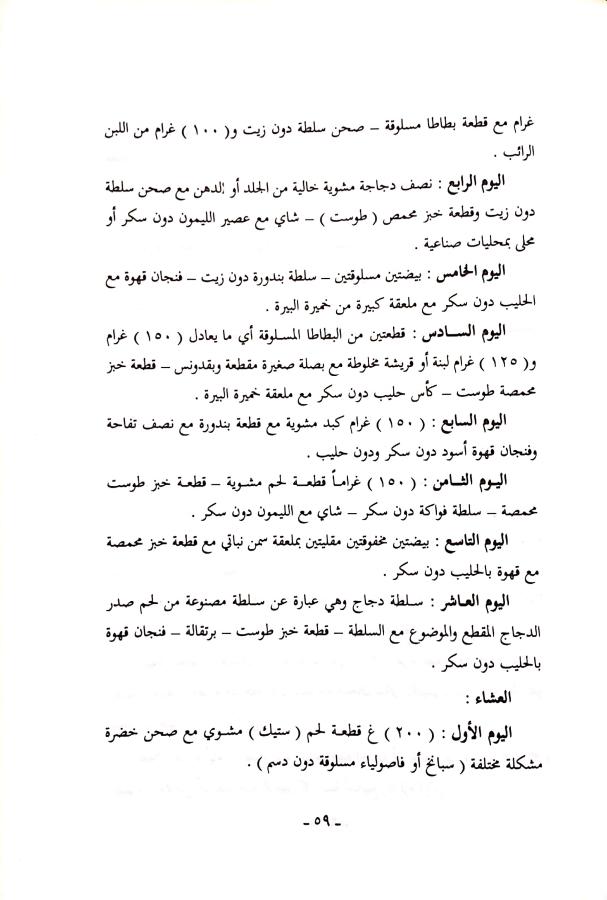 غرام مع قطعة بطاطا مسلوقة – صحن سلطة دون زيت و( ١٠٠ ) غرام من اللبن
الرائب .
اليوم الرابع : نصف دجاجة مشوية خالية من الجلد أو الدهن مع صحن سلطة
دون زيت وقطعة خبز محمص ( طوست ) – شاي مع عصير الليمون دون سكر أو
محلى بمحليات صناعية .
اليوم الخامس : بيضتين مسلوقتين – سلطة بندورة دون زيت – فنجان قهوة مع
الحليب دون سكر مع ملعقة كبيرة من خميرة البيرة .
اليوم الســـادس : قطعتين من البطاطا المسلوقة أي ما يعادل ( ١٥٠ ) غرام
و( ١٢٥ ) غرام لبنة أو قريشة مخلوطة مع بصلة صغيرة مقطعة وبقدونس – قطعة خبز
محمصة طوست – كأس حليب دون سكر مع ملعقة خميرة البيرة .
اليوم السابع : ( ١٥٠ ) غرام كبد مشوية مع قطعة بندورة مع نصف تفاحة
وفنجان قهوة أسود دون سكر ودون حليب .
اليـوم الثـامن : ( ١٥٠ ) غرامـاً قطعـة لحم مشوية – قطعـة خبز طوست
محمصة – سلطة فواكة دون سكر – شاي مع الليمون دون سكر .
اليوم التاسع : بيضتين مخفوقتين مقليتين بملعقة سمن نباتي مع قطعة خبز محمصة
مع قهوة بالحليب دون سكر .
اليوم العـاشر : سـلطة دجاج وهي عبارة عن سـلطة مصنوعة من لحم صدر
الدجاج المقطع والموضوع مع السلطة – قطعة خبز طوست – برتقالة – فنجان قهوة
بالحليب دون سكر .
العشاء :
اليوم الأول : ( ٢٠٠ ) غ قطعـة لحم ( ستيك ) مشوي مع صحن خضرة
مشكلة مختلفة ( سبانخ أو فاصولياء مسلوقة دون دسم ) .
– ٥٩ –